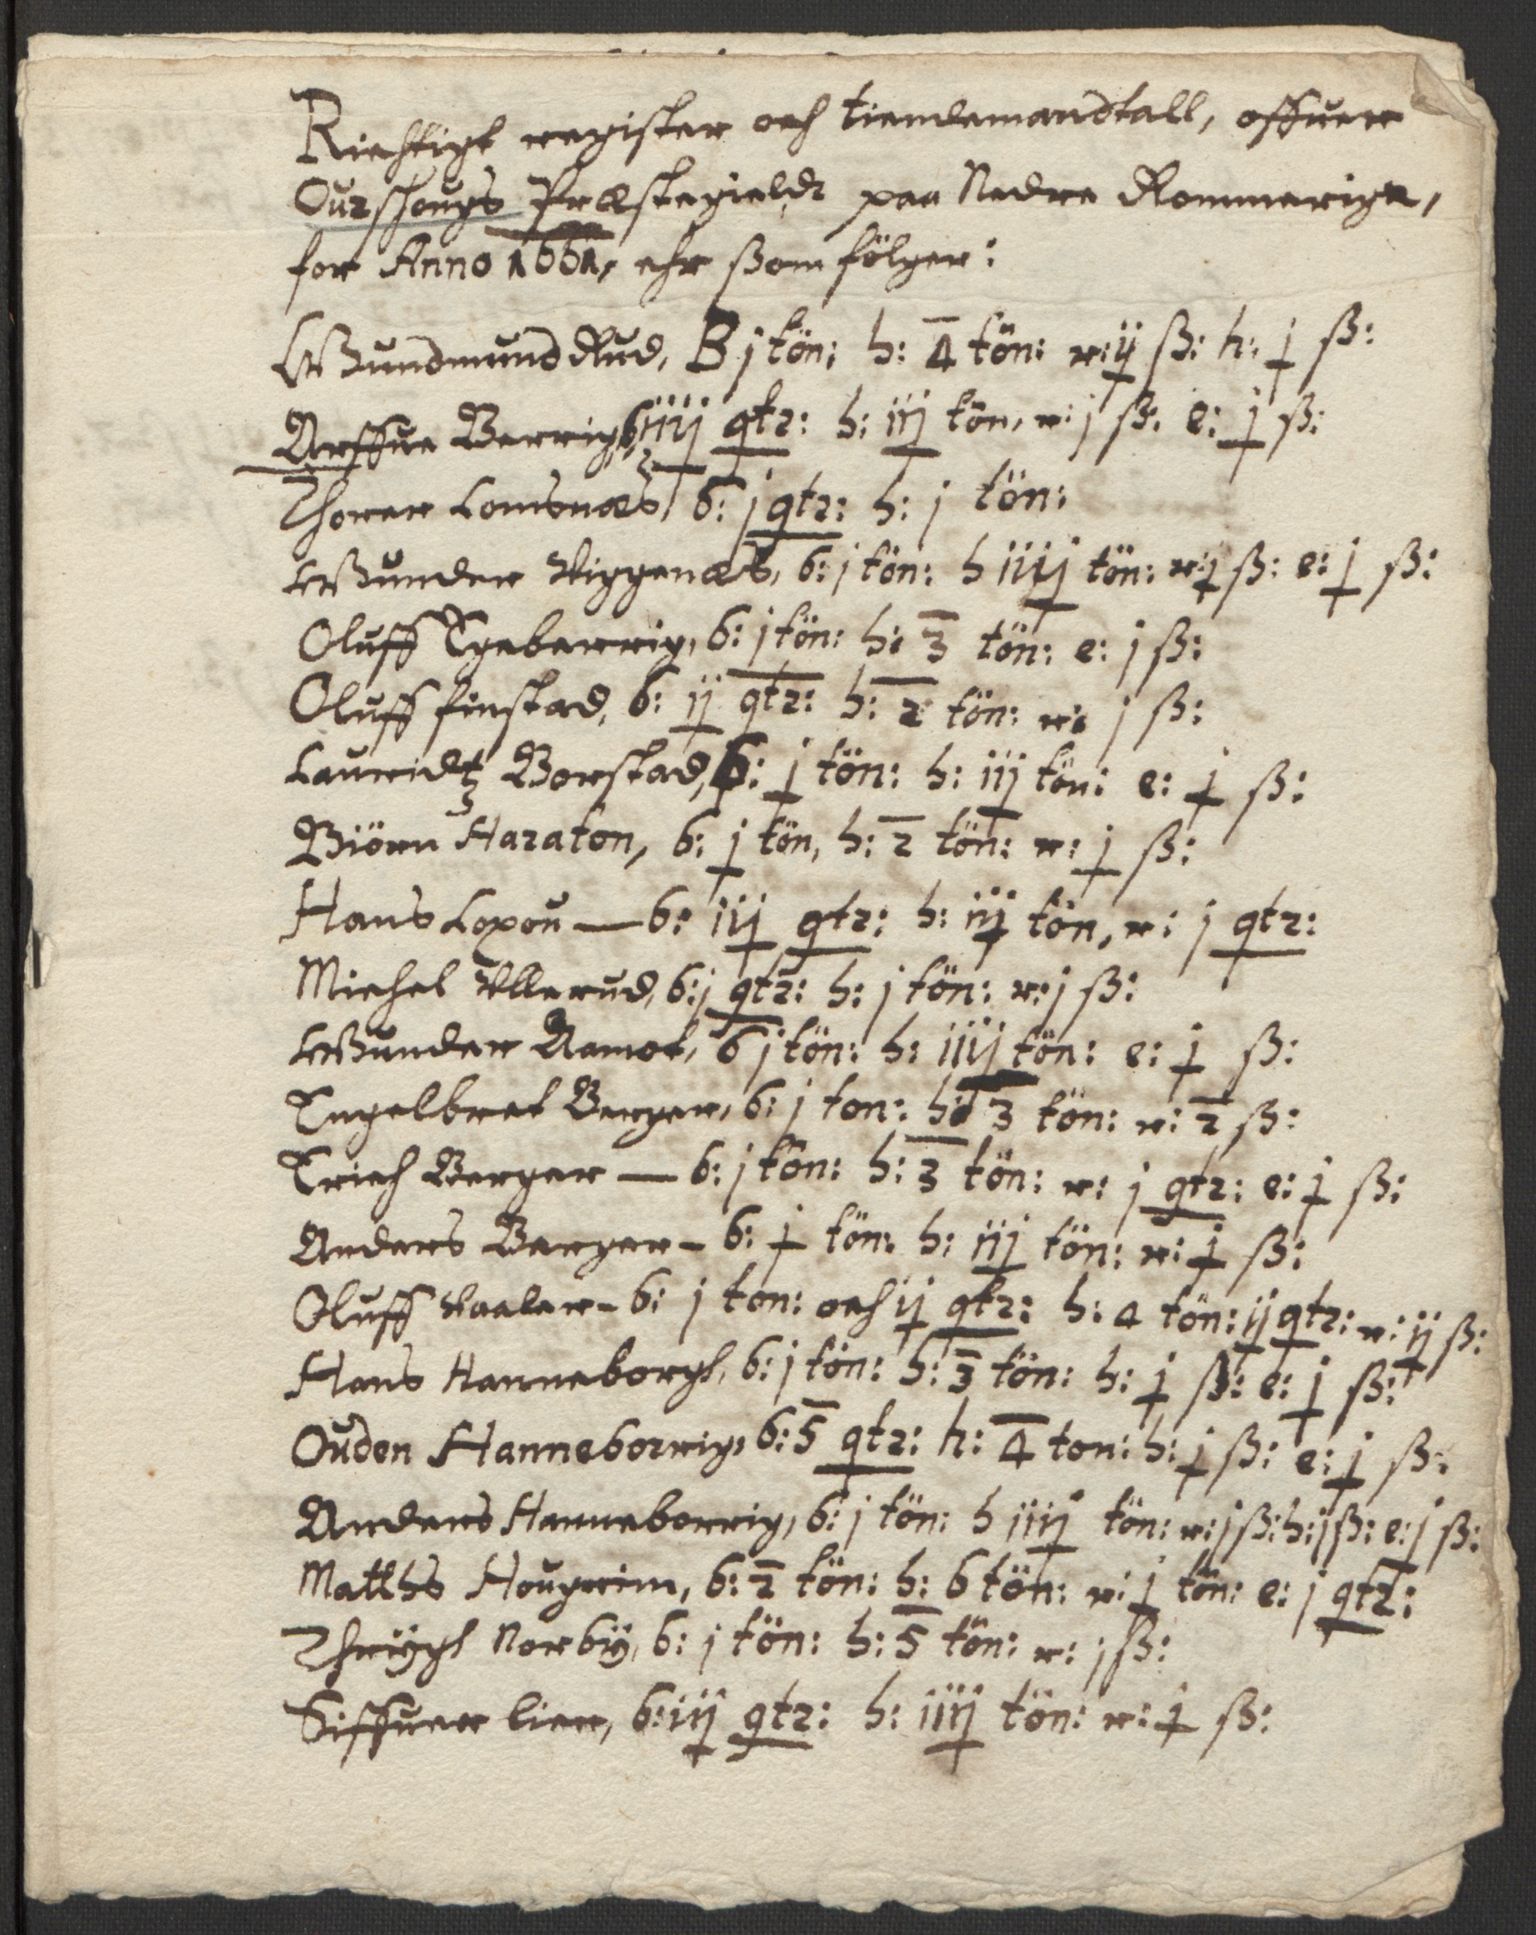 Riechtigt register och tiendemandtall, offuer
Ourschougs Præstegieldt paa Nedre Rommerige,
for Anno 1661, ehr ßom fölger:
Gundmund Rud, B j tön: h: 4 tön: r: ij ß: h: j ß:
Arffue Berrig, b iiij qtr: h: iij tön, r: j ß: e: j ß:
Thorer Lomsnæs, b: j qtr: h: j tön:
Gunder Viggenæs, b: j tön: h iiij tön: r: j ß: e: j ß:
Oluff Egeberrig, b: j tön: h: 3 tön: e: j ß:
Oluff finstad, b: ij qtr: h: 2 tön: r: j ß:
Lauridtz Borstad, b: j tön: h: iij tön: e: j ß:
Biörn Haraton, b: j tön, h: 2 tön: r: j ß:
Hans Lopou — b: iij qtr: h: iij tön, r: j qtr:
Michel Ullerud, b: j qtr: h: j tön: r: j ß:
Gunder Aamot, b j tön: h: iiij tön: e: j ß:
Engelbret Berger, b: j ton: h: 3 tön: r: 2 ß:
Erich Berger — b: j tön: h: 3 tön: r: j qtr: e: j ß:
Anders Berger - b: j tön: h: iij tön: r: j ß:
Oluff Vaaler - b: j ton: och ij qtr: h: 4 tön: ij qtr: r: ij ß:
Hans Hanneborgh, b: j tön: h: 3 tön: h: j ß: e: j ß:
Ouden Hanneborrig, b: 5 qtr: h: 4 ton: h: j ß: e: j ß:
Anders Hanneborrig, b: j tön: h iiij tön: r: j ß: h: j ß: e: j ß:
Matths Hougrim, b: 2 tön: h: 6 tön: r: j tön: e: j qtr:
Thrÿgh Norbÿ, b: j tön: h: 5 tön: r: j ß:
Siffuer lier, b: iij qtr: h: iiij tön: r: j ß: